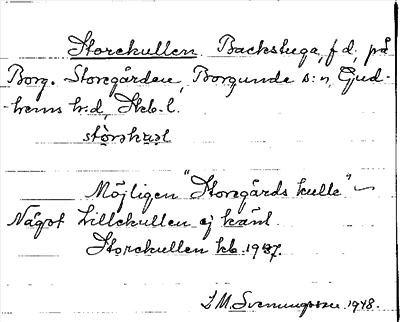 Storekullen. Backstuga, f.d., på
Borg. Storegården, Borgunda s:n, Gud-
hems h:d, Skb. l.
Möjligen "Storegårds kulle"
Något Lillekullen ej känt
Storekullen kb. 1937.
S. M. Svenungsson 1948.